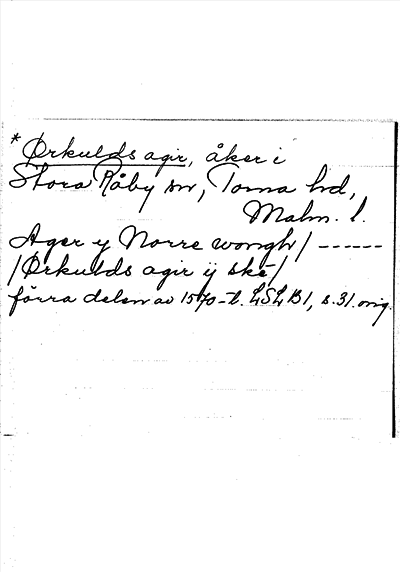 * Ørkulds agir, åker i
Stora Råby sn, Torna hd,
Malm. l.
Ager y Norre wongh / ------
/ Ørkulds agir ÿ ske /
förra delen av 1570-t. LSLB1, s.31. orig.